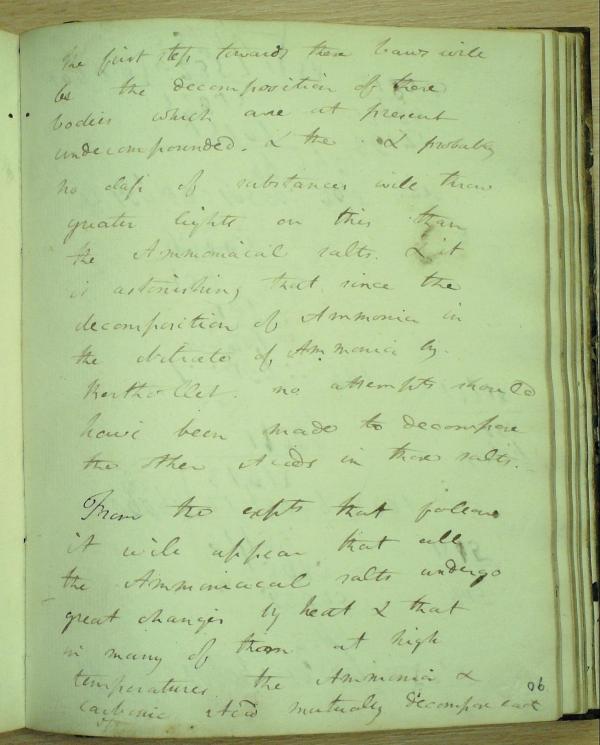 The first step towards these Laws will
be the decomposition of these
bodies which are at present
undecompounded. & the & probably
no class of substances will throw
greater lights on this than
the Ammoniacal salts. & it
is astonishing that since the
decomposition of Ammonia in
the nitrate of Ammonia by
Berthollet. no attempts should
have been made to decompose
the other Acids in those salts.
From the expts that follow
it will appear that all
the Ammoniacal salts undergo
great changes by heat & that
in many of them at high
temperatures the Ammonia &
carbonic Acid mutually decompose each
96